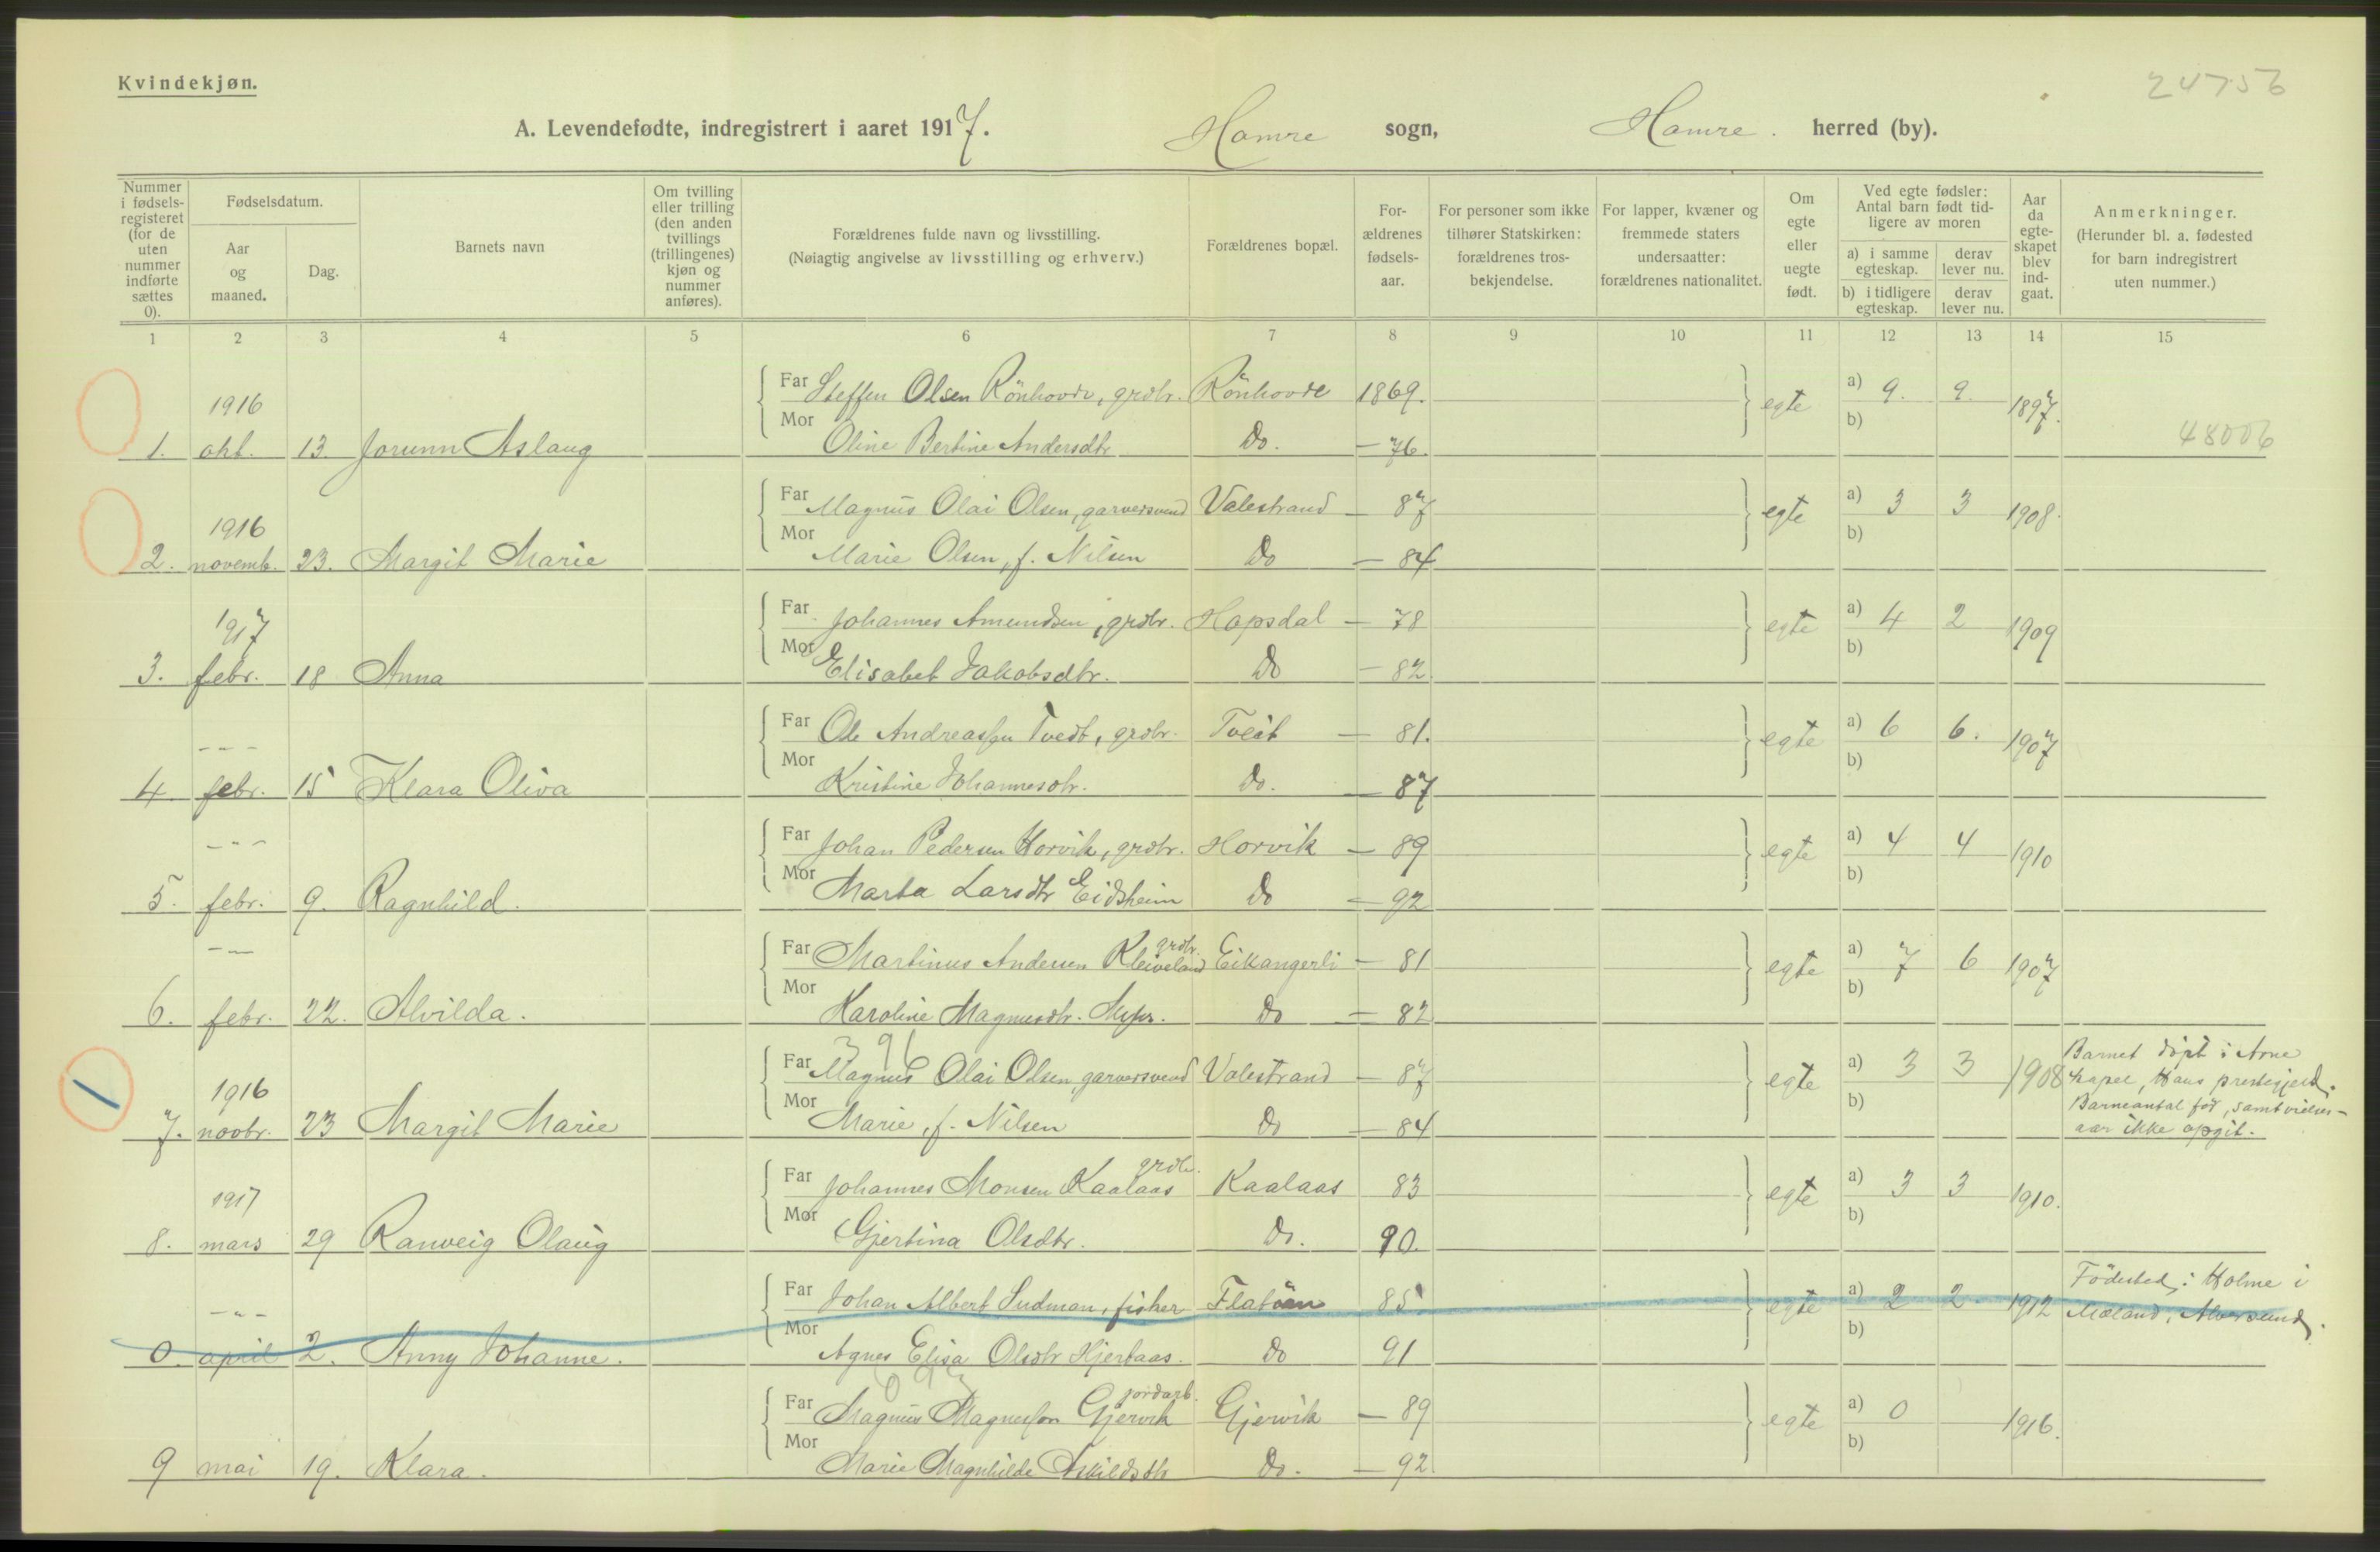 Kvindekjøn.
24756
A. Levendefødte, indregistrert i aaret 1917. Hamre sogn, Hamre. herred (by).
Nummer i fødsels-registeret (for de uten nummer indførte sættes 0).
Fødselsdatum.
Aar og maaned.
Dag.
Barnets navn
Om tvilling eller trilling (den anden tvillings (trillingenes) kjøn og nummer anføres).
Forældrenes fulde navn og livsstilling.
(Nøiagtig angivelse av livsstilling og erhverv.)
Forældrenes bopæl.
For-ældrenes fødsels-aar.
For personer som ikke tilhører Statskirken: forældrenes tros-bekjendelse.
For lapper, kvæner og fremmede staters undersaatter: forældrenes nationalitet.
Om egte eller uegte født.
Ved egte fødsler: Antal barn født tid-ligere av moren
a) i samme egteskap.
derav lever nu.
b) i tidligere egteskap.
derav lever nu.
Aar da egte-skapet blev ind-gaat.
Anmerkninger.
(Herunder bl. a. fødested for barn indregistrert uten nummer.)
1 2 3 4 5 6 7 8 9 10 11 12 13 14 15
Far Steffen Olsen Rönhovde, grdbr. Rönhovde 1869. egte a) 9. 9. 1897.
1916
Mor b)
1. okt. 13. Jorunn Aslaug Oline Bertine Andersdtr Do. — 76. 48006
Far Magnus Olai Olsen, garversvend Valestrand — 87 egte a) 3 3 1908.
1916
Mor b)
2. novemb. 23. Margit Marie Marie Olsen, f. Nilsen Do — 84
Far Johannes Amundsen, grdbr. Hopsdal — 78 egte a) 4 2 1909
1917
Mor b)
3. febr. 18 Anna Elisabet Jakobsdtr. Do — 82
Far Ole Andreassen Tvedt, grdbr. Tveit — 81. egte a) 6 6. 1907
- - -
Mor b)
4 febr. 15 Klara Oliva Kristine Johannesdtr. Do. — 87
Far Johan Pedersen Horvik, grdbr. Horvik — 89 egte a) 4 4 1910
- " -
Mor b)
5. febr. 9. Ragnhild. Marta Larsdtr Eidsheim Do — 92
grdbr.
Far Martinus Andersen Kleiveland Eikangerli — 81 egte a) 7 6 1907
- —
Mor b)
6. febr. 22. Alvilda. Karoline Magnusdtr. Do — 82
396
Far Magnus Olai Olsen, garversvend Valestrand — 87 egte a) 3 3 1908 Barnet döpt i Arne
1916 kapel, Haus prestegjeld.
Mor b) Barneantal før, samt vielses-
7. novbr. 23 Margit Marie Marie, f. Nilsen Do — 84 aar ikke opgit.
grdbr.
Far Johannes Monsen Kaalaas Kaalaas 83 egte a) 3 3 1910.
1917
Mor b)
8. mars 29 Ranveig Olaug Gjertina Olsdtr. Do. 90.
Far Johan Albert Sudman, fisker Flatöen 85 egte a) 2 2 1912 Födested: Holme i
- " - Mæland, Alversund.
Mor b)
0. april 2. Anny Johanne. Agnes Elisa Olsdtr Hjertaas. Do 91
jordarb.
Far Magnus Magnussen Gjervik Gjervik — 89 egte a) 0 1916.
Mor b)
9 mai 19. Klara. Marie Magnhilde Askildsdtr Do. — 92